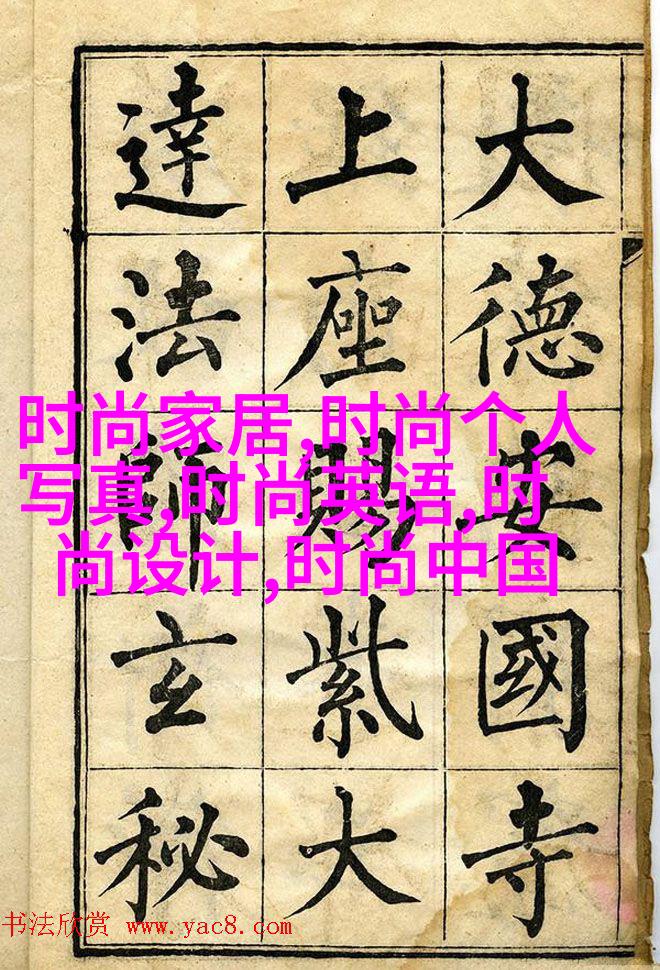 大德安國寺
上座賜紫大
達法師玄秘
时尚家居,时尚个人
写真,时尚英语,时
尚设计,时尚中国
书法欣赏 www.yac8.com